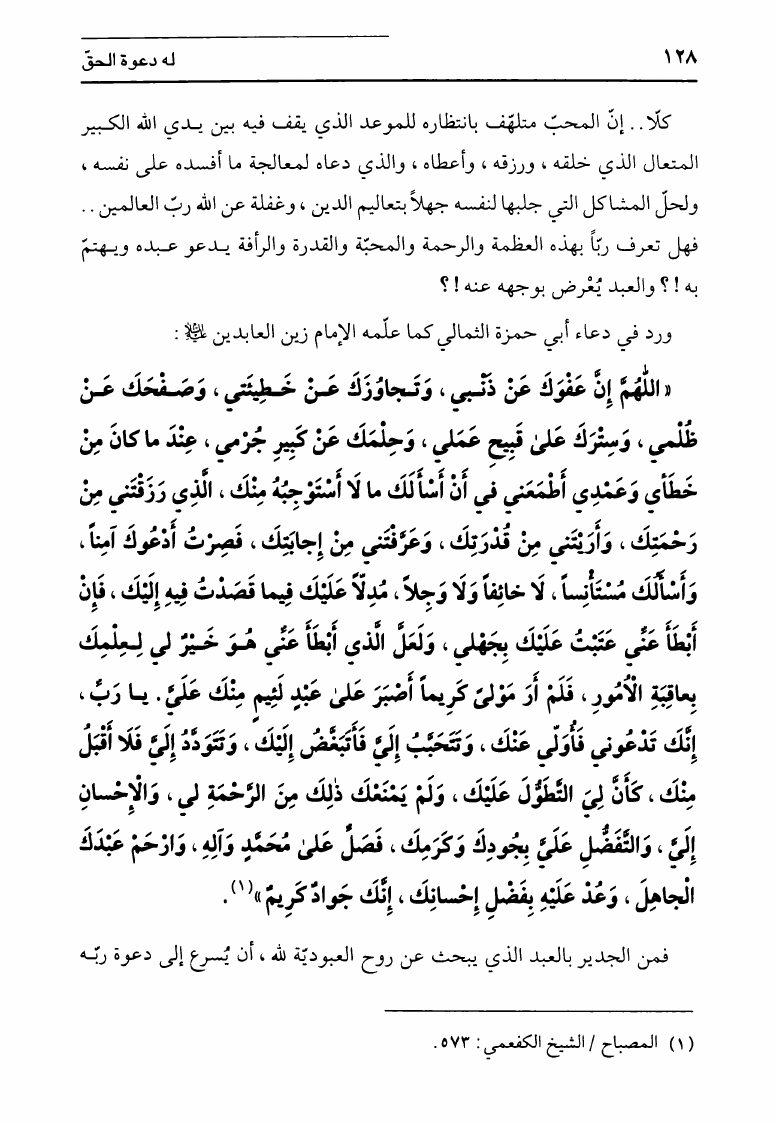 ١٢٨
له دعوة الحقّ
كلّا.. إنّ المحبّ متلهّف بانتظاره للموعد الذي يقف فيه بين يدي الله الكبير
المتعال الذي خلقه ، ورزقه ، وأعطاه ، والذي دعاه لمعالجة ما أفسده على نفسه ،
ولحلّ المشاكل التي جلبها لنفسه جهلاً بتعاليم الدين ، وغفلة عن الله ربّ العالمين ..
فهل تعرف ربّاً بهذه العظمة والرحمة والمحبّة والقدرة والرأفة يدعو عبده ويهتمّ
به !؟ والعبد يُعْرض بوجهه عنه !؟
ورد في دعاء أبي حمزة الثمالي كما علّمه الإمام زين العابدين :
« اللّٰهُمَّ إِنَّ عَفْوَكَ عَنْ ذَنْبي ، وَتَجاوُزَكَ عَنْ خَطِيئَتي ، وَصَفْحَكَ عَنْ
ظُلْمي ، وَسِتْرَكَ عَلىٰ قَبِيحِ عَمَلي ، وَحِلْمَكَ عَنْ كَبِيرِ جُرْمي ، عِنْدَ ما كانَ مِنْ
خَطَأي وَعَمْدِي أَطْمَعَني في أَنْ أَسْأَلَكَ ما لَا أَسْتَوْجِبُهُ مِنْكَ ، الَّذِي رَزَقْتَني مِنْ
رَحْمَتِكَ ، وَأَرَيْتَني مِنْ قُدْرَتِكَ ، وَعَرَّفْتَني مِنْ إِجابَتِكَ ، فَصِرْتُ أَدْعُوكَ آمِناً ،
وَأَسْأَلُكَ مُسْتَأْنِساً ، لَا خائِفاً وَلَا وَجِلاً ، مُدِلّاً عَلَيْكَ فِيما قَصَدْتُ فِيهِ إِلَيْكَ ، فَإِنْ
أَبْطَأَ عَنِّي عَتَبْتُ عَلَيْكَ بِجَهْلي ، وَلَعَلَّ الَّذي أَبْطَأَ عَنِّي هُوَ خَيْرٌ لي لِعِلْمِكَ
بِعاقِبَةِ الْاُمُورِ ، فَلَمْ أَرَ مَوْلىً كَرِيماً أَصْبَرَ عَلىٰ عَبْدٍ لَئِيمٍ مِنْكَ عَلَيَّ . يا رَبِّ ،
إِنَّكَ تَدْعُوني فَأُوَلّي عَنْكَ ، وَتَتَحَبَّبُ إِلَيَّ فَأَتَبَغَّضُ إِلَيْكَ ، وَتَتَوَدَّدُ إِلَيَّ فَلَا أَقْبَلُ
مِنْكَ ، كَأَنَّ لِيَ التَّطَوُّلَ عَلَيْكَ ، وَلَمْ يَمْنَعْكَ ذٰلِكَ مِنَ الرَّحْمَةِ لي ، وَالْإِحْسانِ
إِلَيَّ ، وَالتَّفَضُّلِ عَلَيَّ بِجُودِكَ وَكَرَمِكَ ، فَصَلِّ عَلىٰ مُحَمَّدٍ وَآلِهِ ، وَارْحَمْ عَبْدَكَ
الْجاهِلَ ، وَعُدْ عَلَيْهِ بِفَضْلِ إِحْسانِكَ ، إِنَّكَ جَوادٌ كَرِيمٌ »(١).
فمن الجدير بالعبد الذي يبحث عن روح العبوديّة لله ، أن يُسرع إلى دعوة ربّه
(١) المصباح / الشيخ الكفعمي : ٥٧٣.